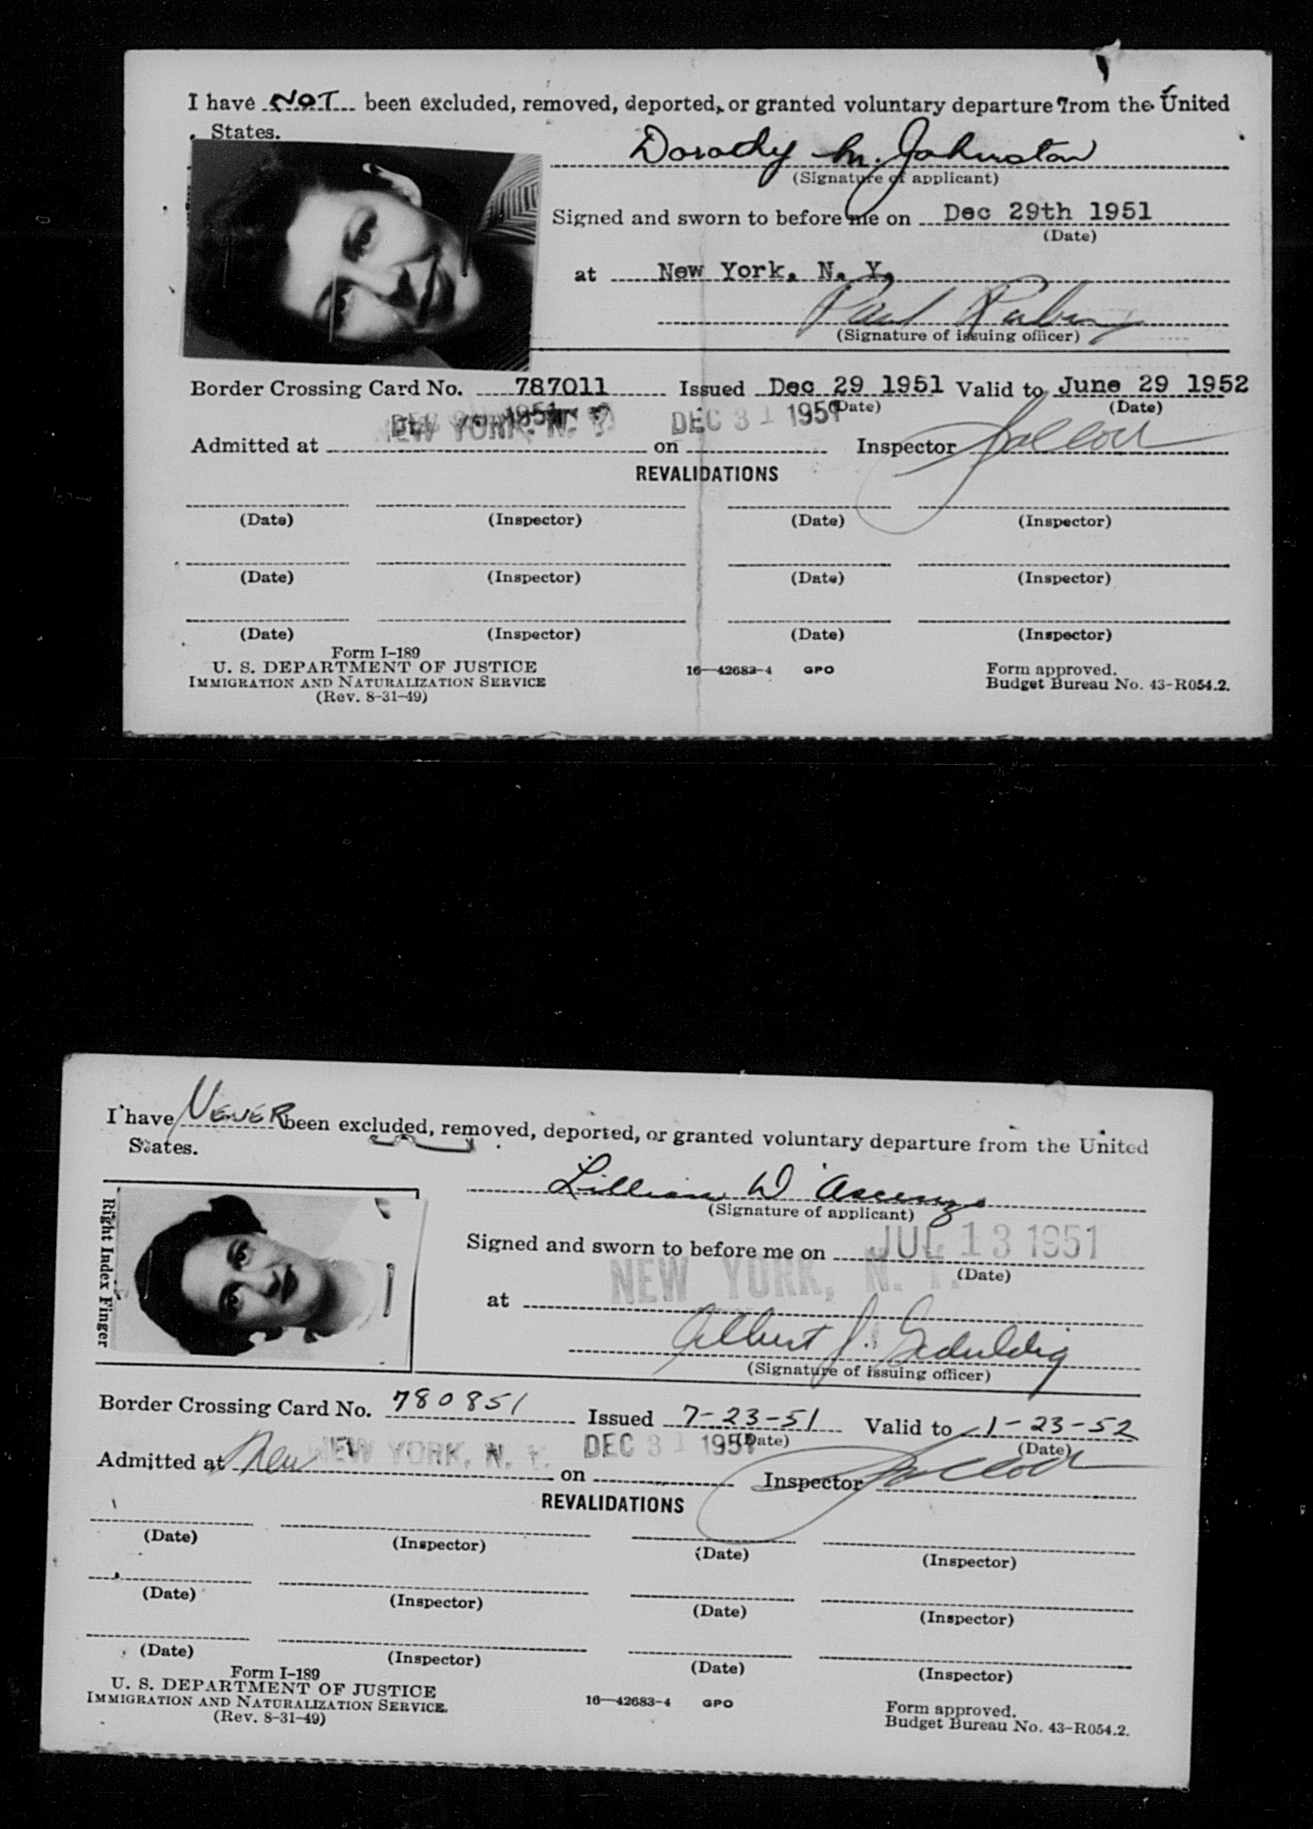 I have NOT been excluded, removed, deported, or granted voluntary departure from the United
States.
Dorothy M. Johnston
(Signature of applicant)
Signed and sworn to before me on Dec 29th 1951
(Date)
at New York, N. Y.
Paul Rubin
(Signature of issuing officer)
Border Crossing Card No. 787011 Issued Dec 29 1951 Valid to June 29 1952
(Date) (Date)
Admitted at NEW YORK, N. Y. on DEC 31 1951 Inspector
REVALIDATIONS
(Date) (Inspector) (Date) (Inspector)
(Date) (Inspector) (Date) (Inspector)
(Date) (Inspector) (Date) (Inspector)
Form I-189
U. S. DEPARTMENT OF JUSTICE 16—42683-4 GPO Form approved.
IMMIGRATION AND NATURALIZATION SERVICE Budget Bureau No. 43-R054.2.
(Rev. 8-31-49)
I have NEVER been excluded, removed, deported, or granted voluntary departure from the United
States.
Right Index Finger
Lillian D'Ascenzo
(Signature of applicant)
Signed and sworn to before me on JUL 13 1951
(Date)
at NEW YORK, N. Y.
Albert J. Geduldig
(Signature of issuing officer)
Border Crossing Card No. 780851 Issued 7-23-51 Valid to 1-23-52
(Date) (Date)
Admitted at New NEW YORK, N. Y. on DEC 31 1951 Inspector
REVALIDATIONS
(Date) (Inspector) (Date) (Inspector)
(Date) (Inspector) (Date) (Inspector)
(Date) (Inspector) (Date) (Inspector)
Form I-189
U. S. DEPARTMENT OF JUSTICE 16—42683-4 GPO Form approved.
IMMIGRATION AND NATURALIZATION SERVICE. Budget Bureau No. 43-R054.2.
(Rev. 8-31-49)